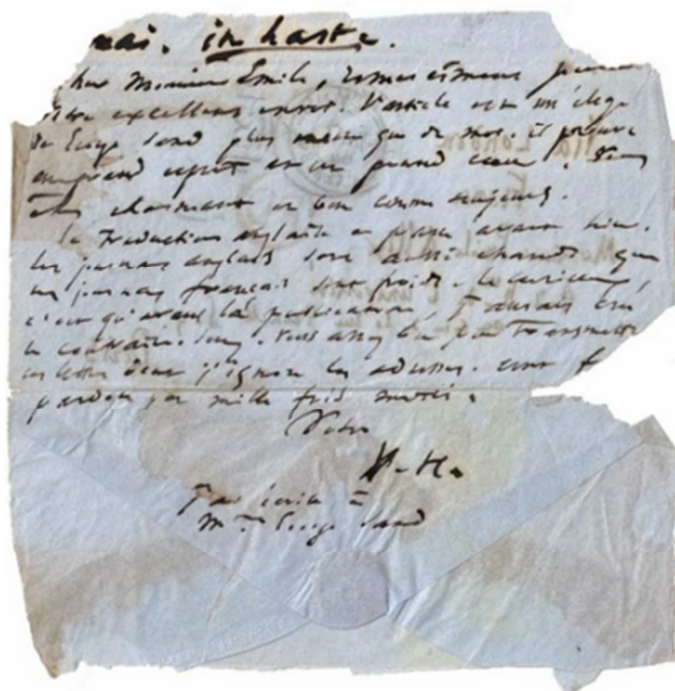 mai. in haste.
cher Monsieur Emile,
excellent envoi. L'article est un éloge
de George Sand plus encore que de moi. il prouve
un grand esprit et un grand cœur. Vous
êtes charmant et bon comme toujours.
la Traduction anglaise a paru avant hier.
les journaux anglais sont aussi chauds que
les journaux français sont froids. le curieux,
c'est qu'avant la publication, j'aurais cru
le contraire. Vous assez bon pour transmettre
ces lettres dont j'ignore les adresses.
pardon, et mille fois merci.
Votre
V. H.
J'ai écrit à
Mme George Sand